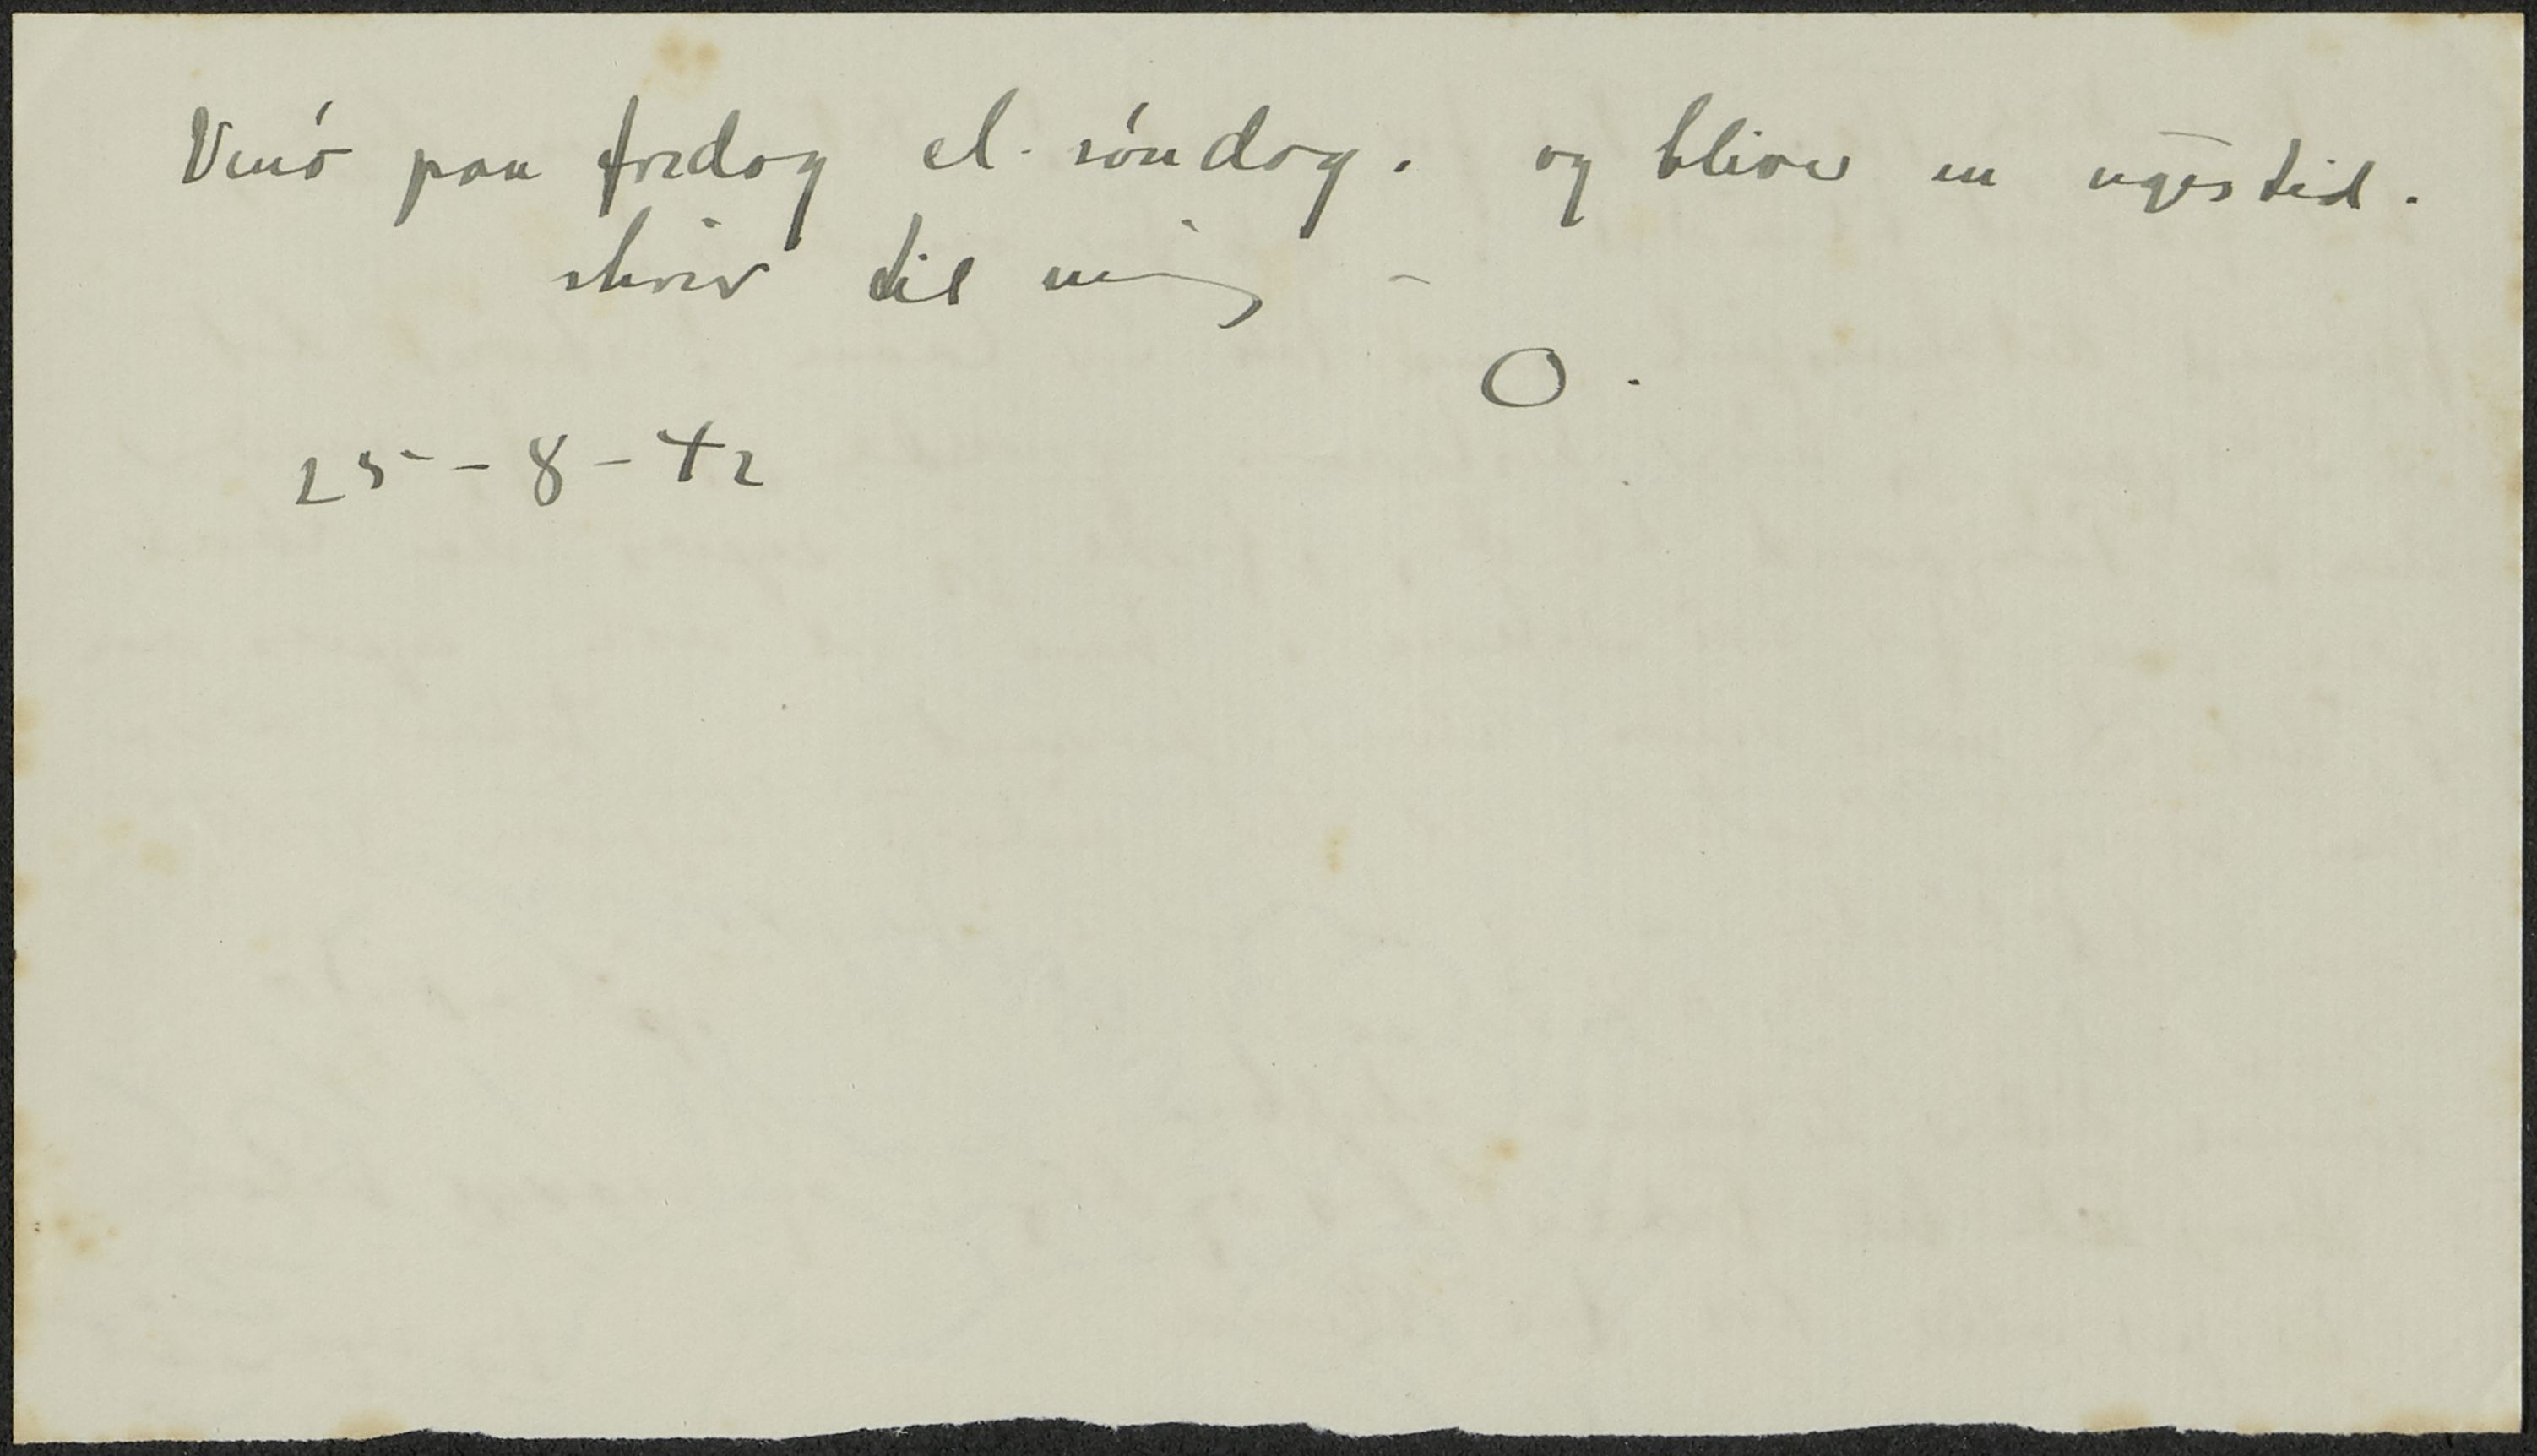 Venø paa fredag el. søndag. og bliver en ugestid.
skriv til mig –
O.
25-8-42